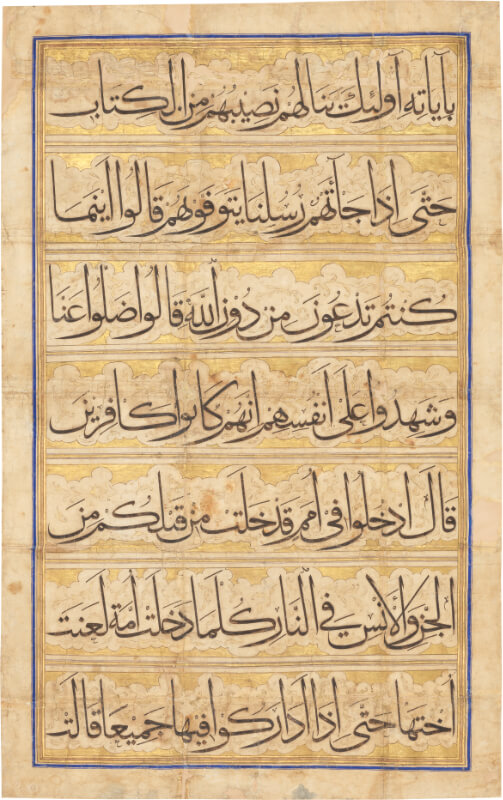 بآياته أولئك ينالهم نصيبهم من الكتاب
حتى إذا جاءتهم رسلنا يتوفونهم قالوا أينما
كنتم تدعون من دون الله قالوا ضلوا عنا
وشهدوا على أنفسهم أنهم كانوا كافرين
قال ادخلوا في أمم قد خلت من قبلكم من
الجن والإنس في النار كلما دخلت أمة لعنت
أختها حتى إذا اداركوا فيها جميعا قالت